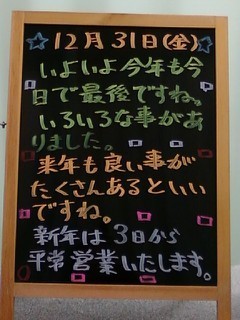 12月31日(金)
いよいよ今年も今
日で最後ですね。
いろいろな事があ
りました。
来年も良い事が
たくさんあるといい
ですね。
新年は3日から
平常営業いたします。